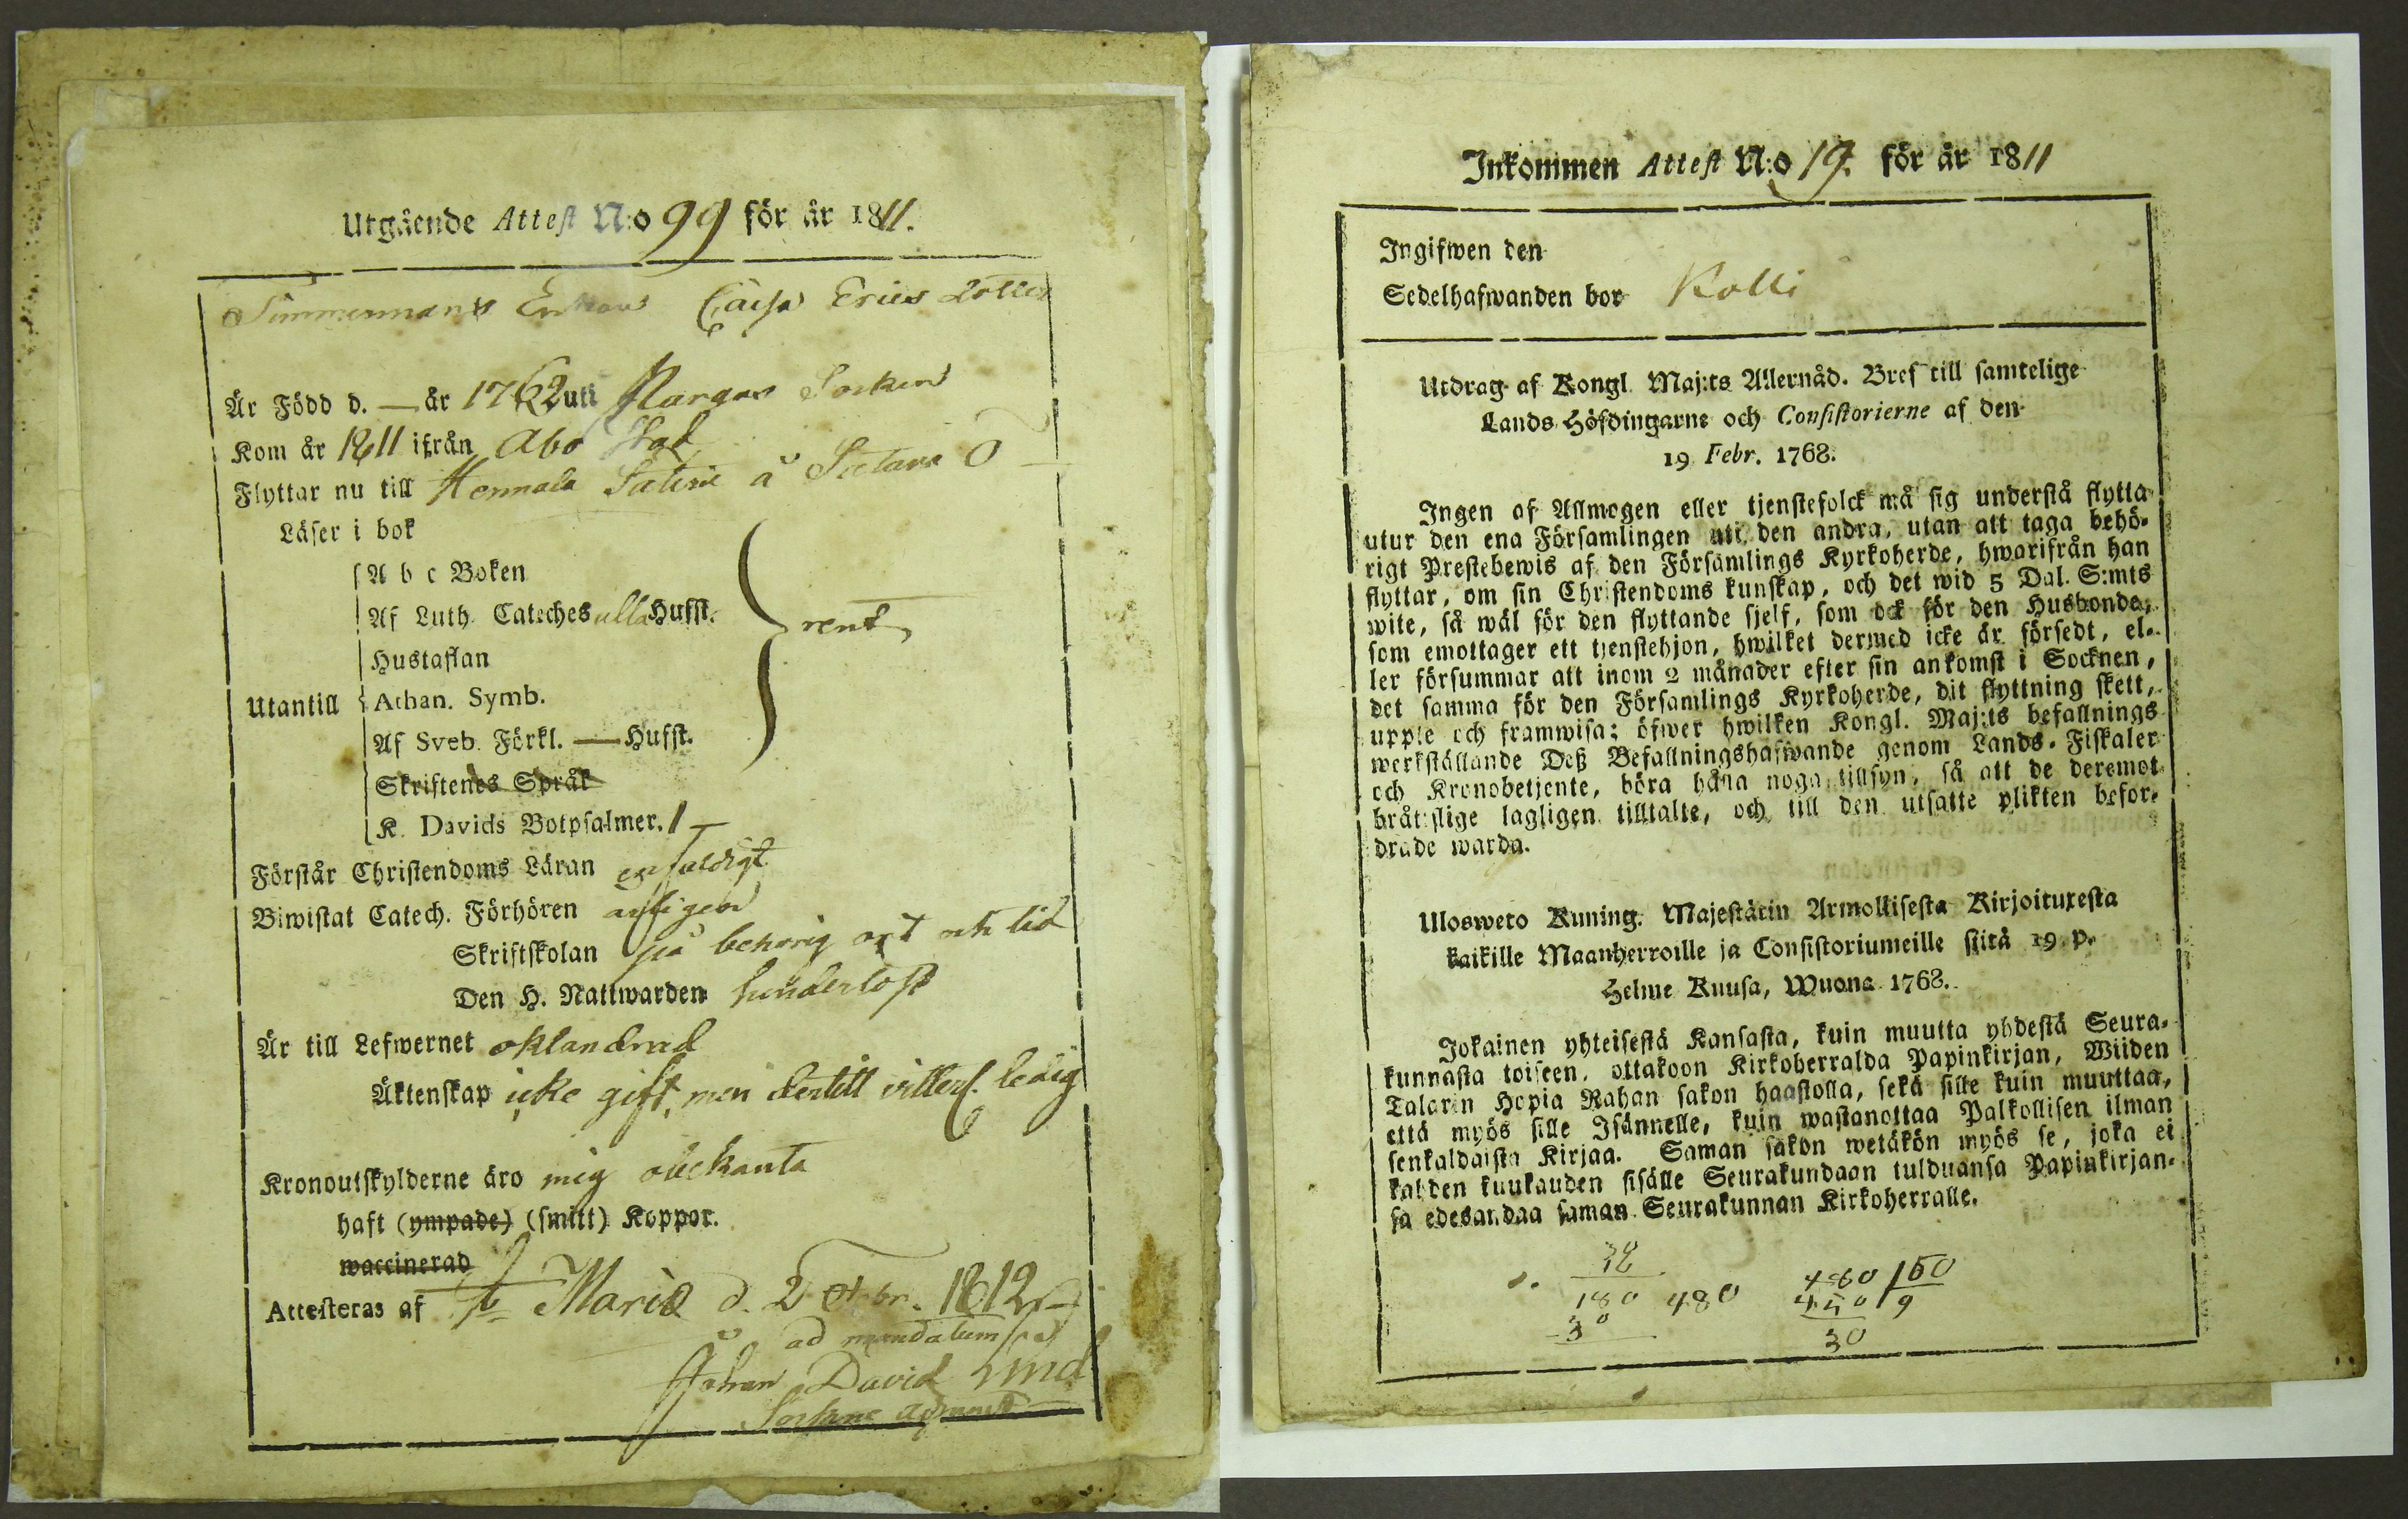 Utgående Attest N:o 99 för år 1811.
Timmermans Enkan Caisa Erics dotter
Är Född d. — år 1762 uti Nargus Socken
Kom år 1811 ifrån Abo Stad
Flyttar nu till Hennala Säteri å Satava Ö
Läser i bok
A b c Boken
Af Luth. Cateches alla Hufst. rent
Hustaflan
Utantill Athan. Symb.
Af Sveb. Förkl. — Hufst.
Skriftenes Språk
K. Davids Botpsalmer. 1
Förstår Christendoms Läran enfaldigt
Biwistat Catech. Förhören anligen
Skriftskolan på behorig ort och tid
Den H. Nattwarden hinderlost
Är till Lefwernet oklandrad
Äktenskap icke gift, men dertill vitterl. ledig
Kronoutskylderne äro mig obekanta
haft (ympade) (smitt) Koppor.
waccinerad
Attesteras af St Mariæ d. 2 Octbr. 1812
ad mandatum
Johan David Lind
Sockne adjunct
Inkommen Attest N:o 19. för år 1811
Ingifwen den
Sedelhafwanden bor Kolli
Utdrag af Kongl. Maj:ts Allernåd. Bref till samtelige
Lands Höfdingarne och Consistorierne af den
19 Febr. 1768.
Ingen af Allmogen eller tjenstefolck må sig understå flytta
utur den ena Församlingen uti den andra, utan att taga behö-
rigt Prestebewis af den Församlings Kyrkoherde, hwarifrån han
flyttar, om sin Christendoms kunskap, och det wid 5 Dal. S:mts
wite, så wäl för den flyttande sjelf, som ock för den Husbonde,
som emottager ett tjenstehjon, hwilket dermed icke är försedt, el-
ler försummar att inom 2 månader efter sin ankomst i Socknen,
det samma för den Församlings Kyrkoherde, dit flyttning skett,
uppte och framwisa; öfwer hwilken Kongl. Maj:ts befallnings
werkställande Deß Befallningshafwande genom Lands-Fiskaler
och Kronobetjente, böra hålla noga tillsyn, så att de deremot
bråtslige lagligen tilltalte, och till den utsatte plikten befor-
drade warda.
Ulosweto Kuning. Majestätin Armollisesta Kirjoituxesta
kaikille Maanherroille ja Consistoriumeille siitä 19 p.
Helme Kuusa, Wuona 1768.
Jokainen yhteisestä Kansasta, kuin muutta yhdestä Seura-
kunnasta toiseen, ottakoon Kirkoherralda Papinkirjan, Wiiden
Talarin Hopia Rahan sakon haastolla, sekä sille kuin muuttaa,
että myös sille Isännelle, kuin wastanottaa Palkollisen ilman
senkaldaista Kirjaa. Saman sakon wetäkön myös se, joka ei
kahden kuukauden sisälle Seurakundaan tulduansa Papinkirjan-
sa edesandaa saman Seurakunnan Kirkoherralle.
180 480
480 150
450 9
30